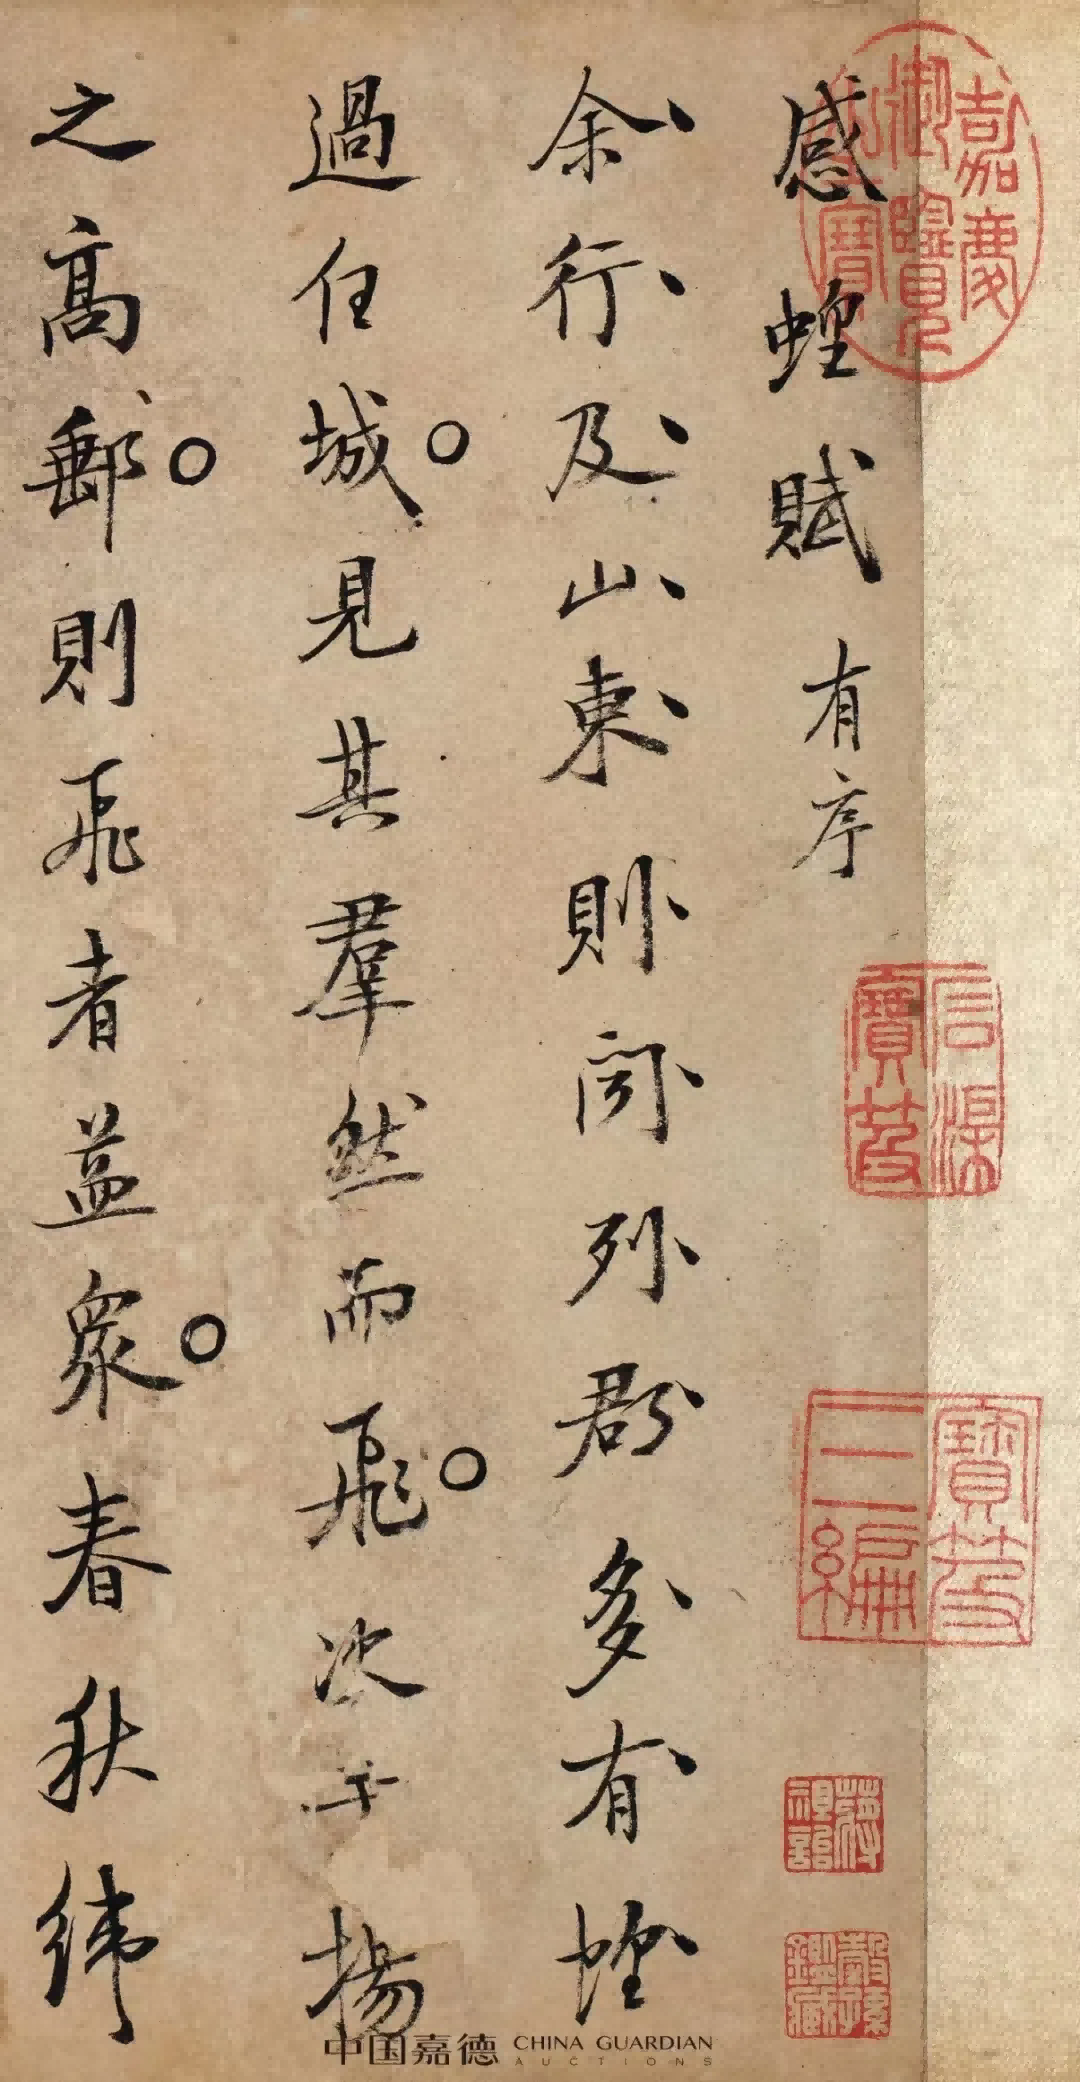 感蝗賦 有序
余行及山東則聞列郡多有蝗
過任城見其羣然而飛次于揚
之高郵則飛者益衆春秋緯
嘉慶御覽之寶
石渠寶笈
寶笈三編
中国嘉德 CHINA GUARDIAN
AUCTIONS